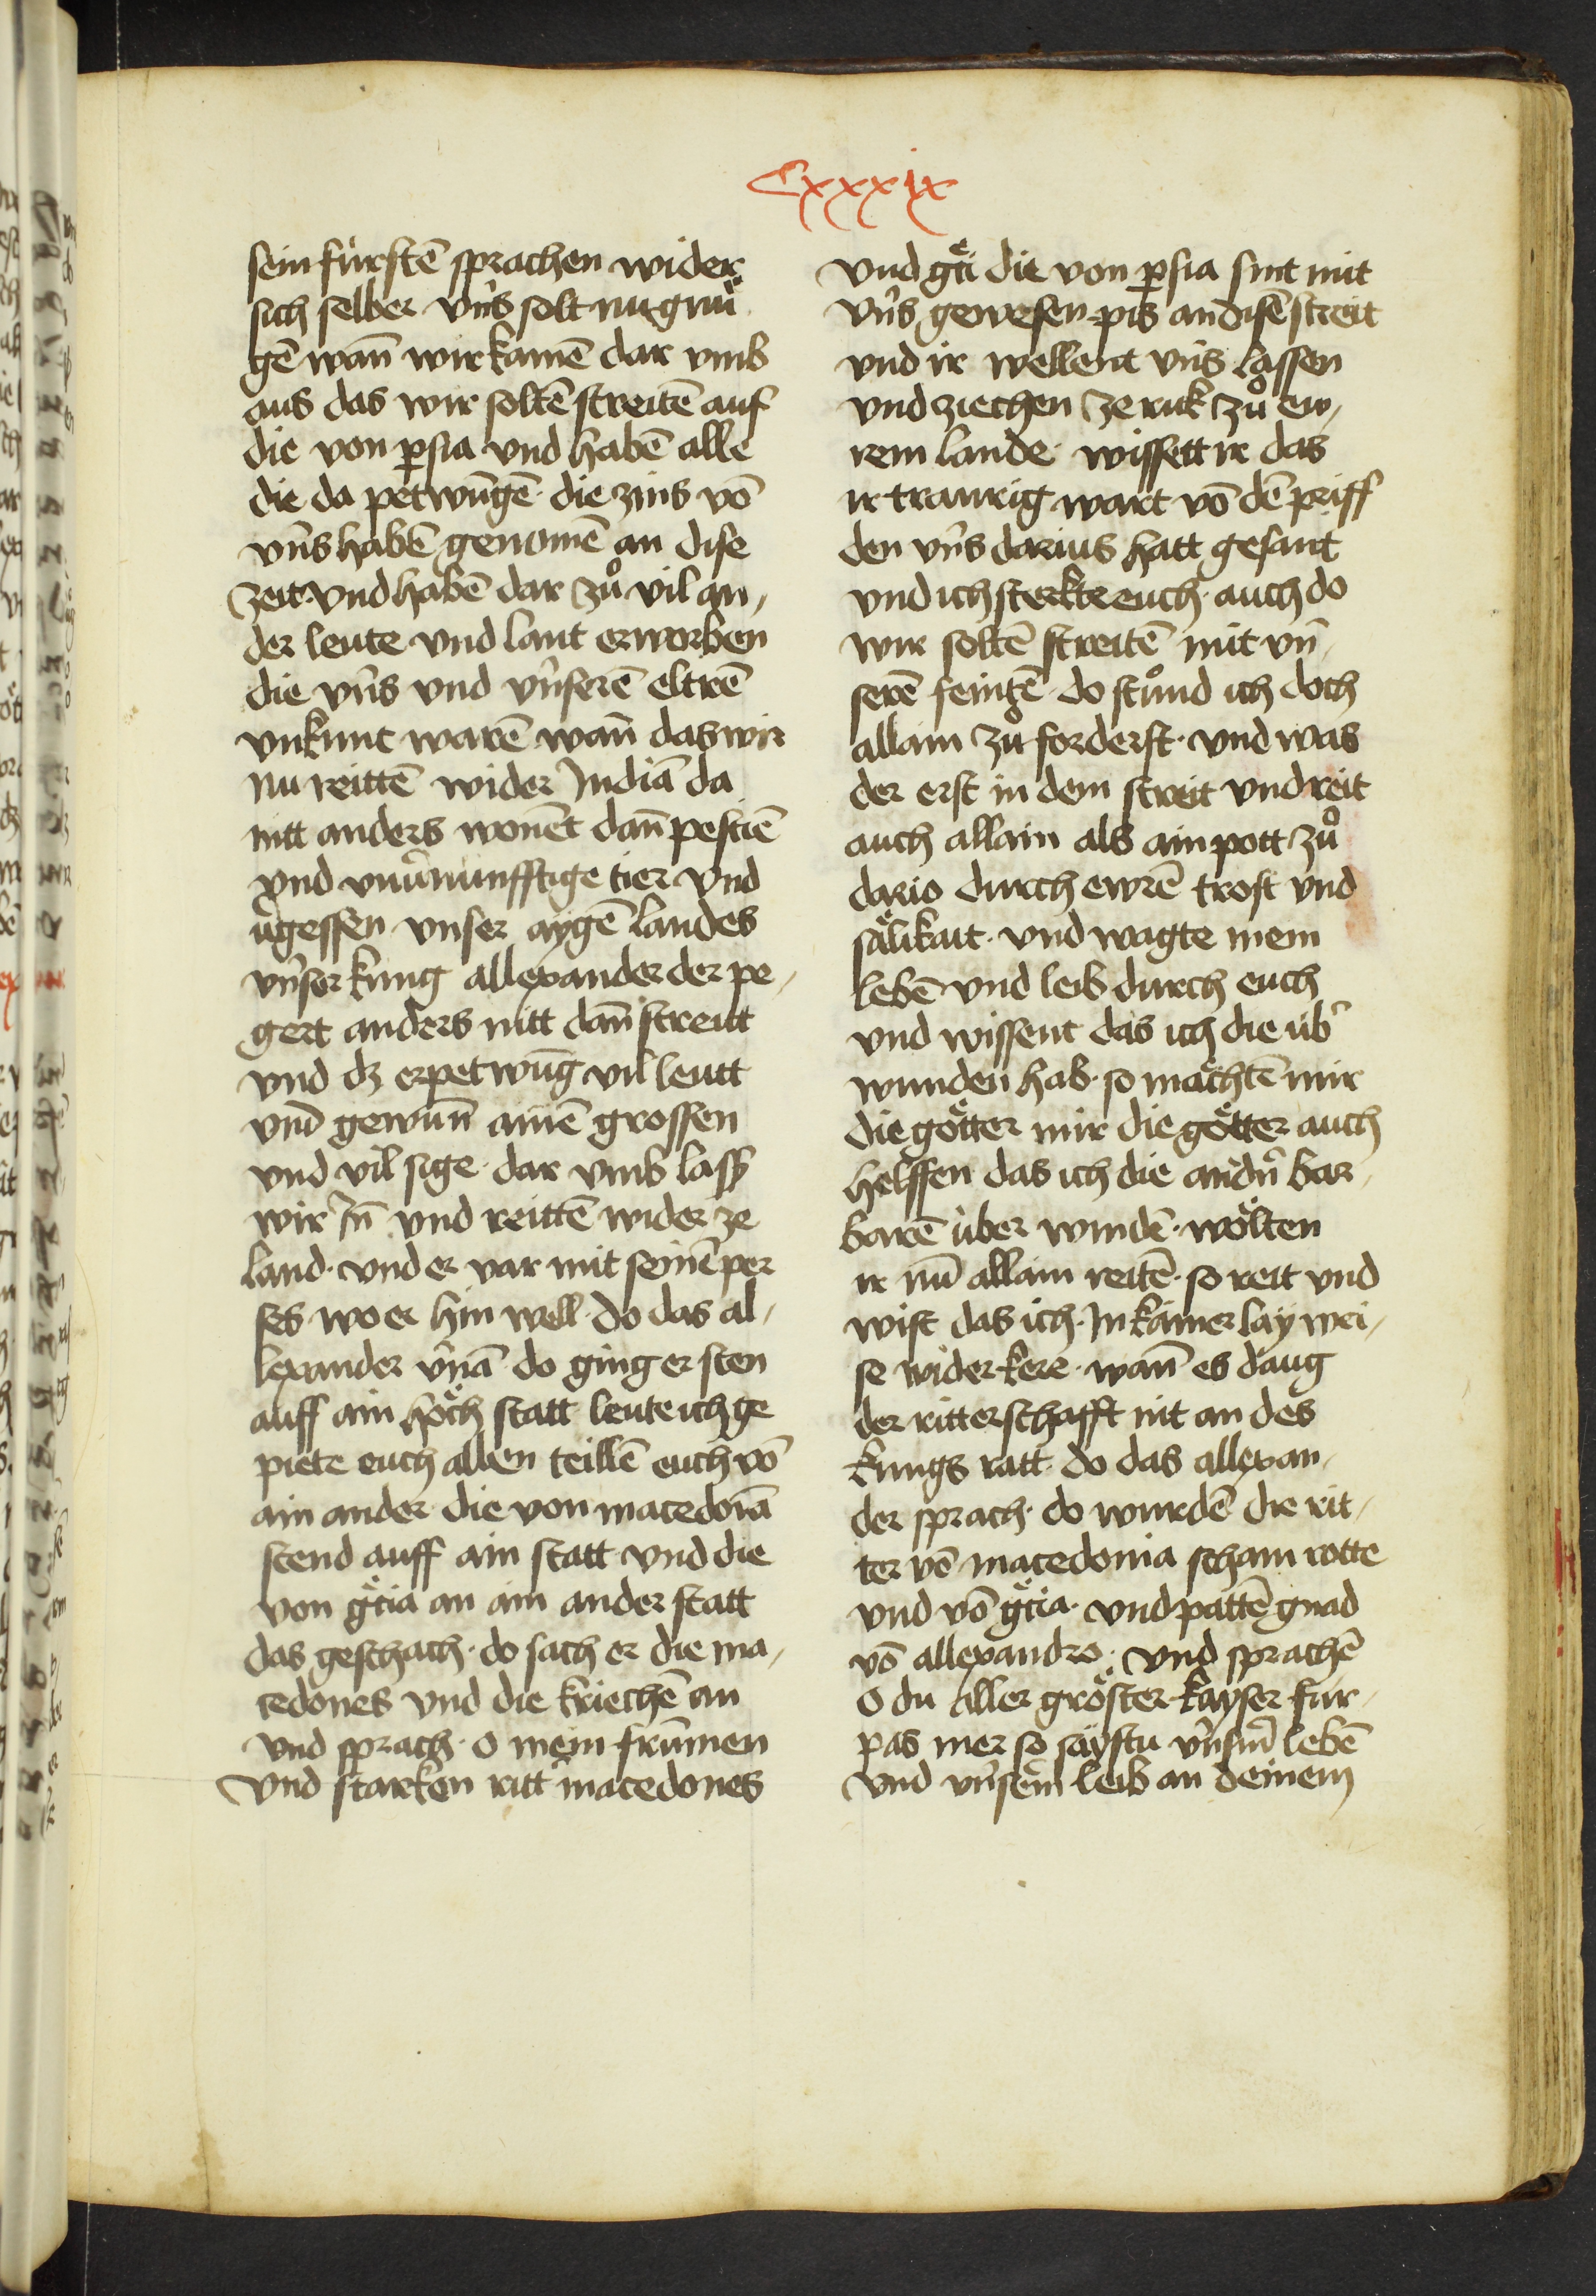 Cxxxix
sein fürstē sprachen wider
sich selber vn̄s solt nu gnuͤ
gē wan̄ wir kamē dar vmb
aus das wir soltē streitē auf
die von ꝑsia vnd habē alle
die da petwūgē · die zins vō
vn̄s habē genomē an dise
zeit · vnd habē dar zuͦ vil an,
der leute vnd lant erworben
die vn̄s vnd vn̄serē eltrē
vnkunt warē wan̄ das wir
nu reittē wider Indiā da
nitt anders wonēt dan̄ pestiē
vnd vnu̾nunfftige tier vnd
u̾gessen vnser aygē landes
vn̄ser kung allexander der pe,
gert anders nitt dan̄ streitt
vnd dz er petwūg vil leutt
vnd gewun̄ ainē grossen
vnd vil sige · dar vmb lass
wir In̄ vnd reittē wider ze
land · vnd er var mit seinē per
ses wo er hin well · do das al,
lexander v̾nā · do ging er sten
auff ain hoͤch statt leute ich ge
piete euch allen teillē euch vō
ain ander · die von macedoiā
stend auff ain statt vnd die
von gͤcia an ain ander statt
das geschach · do sach er die ma,
cedones vnd die kriechē an
vnd sprach · o mein frūmen
vnd starken ritt̾ macedones
vnd gͤci die von ꝑsia sint mit
vn̄s gewesen pis an disē streit
vnd ir wellent vn̄s lassen
vnd ziechen ze ruk zuͦ ew,
rem lande · wissett ir das
ir traurig wart vō dē priff
den vn̄s darius hatt gesant
vnd ich sterkte euch · auch do
wir soltē streitē mit vn̄,
serē feintē · do stuͦnd ich doch
allain zuͦ forderst · vnd was
der erst in dem streit vnd reit
auch allain als ain pott zuͦ
dario durch ewrē trost vnd
saͤlikait · vnd wagte mein
lebē vnd leib durch euch
vnd wissent das ich die üb̾
wunden hab · so maͤchtē mir
die goͤtter mir die goͤtter auch
helffen das ich die andn̾ bar,
barē über windē · woͤlten
ir nū allain reitē · so reit vnd
wist das ich · In kainer lay wei,
se wider kere · wan̄ es daug
der ritterschafft nit an des
kungs ratt · do das allexan,
der sprach · do wurdē die rit,
ter vō macedonia scham rotte
vnd vō gͤcia · vnd pattē gnad
vō allexandro · vnd sprachē
o du aller groͤster kayser für,
pas mer so saͤystu vn̄sm̄ lebē
vnd vn̄sem̄ leib an deinem